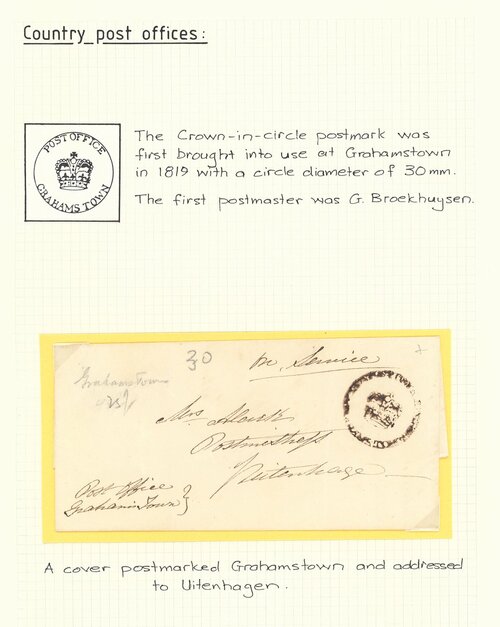 Country post offices:
POST OFFICE
GRAHAMS TOWN
The Crown-in-circle postmark was
first brought into use at Grahamstown
in 1819 with a circle diameter of 30mm.
The first postmaster was G. Broekhuysen.
30
On Service
Grahamstown
Mrs
Postmistress
Uitenhage
Post Office
Grahams Town
A cover postmarked Grahamstown and addressed
to Uitenhagen.